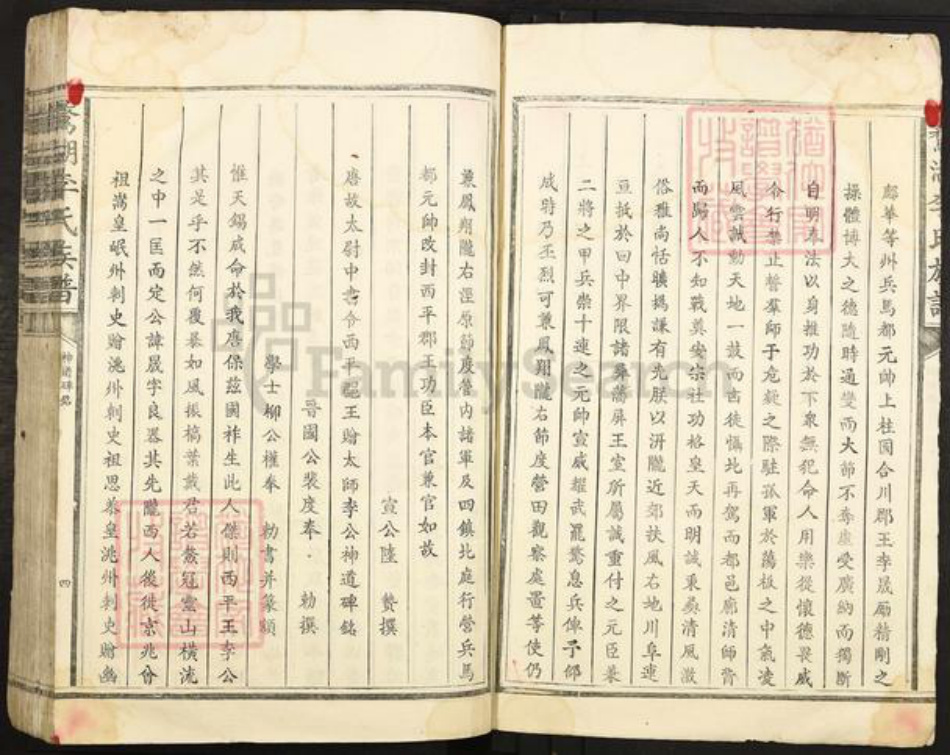 鄜華等州兵馬都元帥上柱國合川郡王李晟勵精剛之
操體博大之德隨時通變而大節不奪虛受廣納而獨斷
自明奉法以身推功於下衆無犯命人用樂從懷德畏威
令行禁止誓羣師于危疑之際駐孤軍於蕩板之中氣凌
風雲誠動天地一鼓而㐫徒懾北再駕而都邑廓清師旹
而歸人不知戰奠安宗社功格皇天而明誠秉彝清風激
俗雅尚恬曠撝謙有光朕以汧隴近郊扶風右地川阜連
亘抵於回中界限諸彝藩屏王室所屬誠重付之元臣兼
二將之甲兵崇十連之元帥宣威耀武罷驚息兵俾予仰
成時乃丕烈可兼鳳翔隴右節度營田觀察處置等使仍
兼鳳翔隴右涇原節度管內諸軍及四鎮北庭行營兵馬
都元帥改封西平郡王功臣本官兼官如故
宣公陸 贄撰
唐故太尉中書令西平郡王贈太師李公神道碑銘
晉國公裴度奉 勅撰
學士柳公權奉 勅書并篆額
惟天錫成命於我唐保茲國祚生此人傑則西平王李公
其是乎不然何覆暴如風振槁葉戴君若鰲冠靈山橫流
之中一匡而定公諱晟字良器其先隴西人後徙京兆曾
祖嵩皇岷州刺史贈洮州刺史祖思恭皇洮州刺史贈幽
李氏族譜
神道碑銘
四
FamilySearch